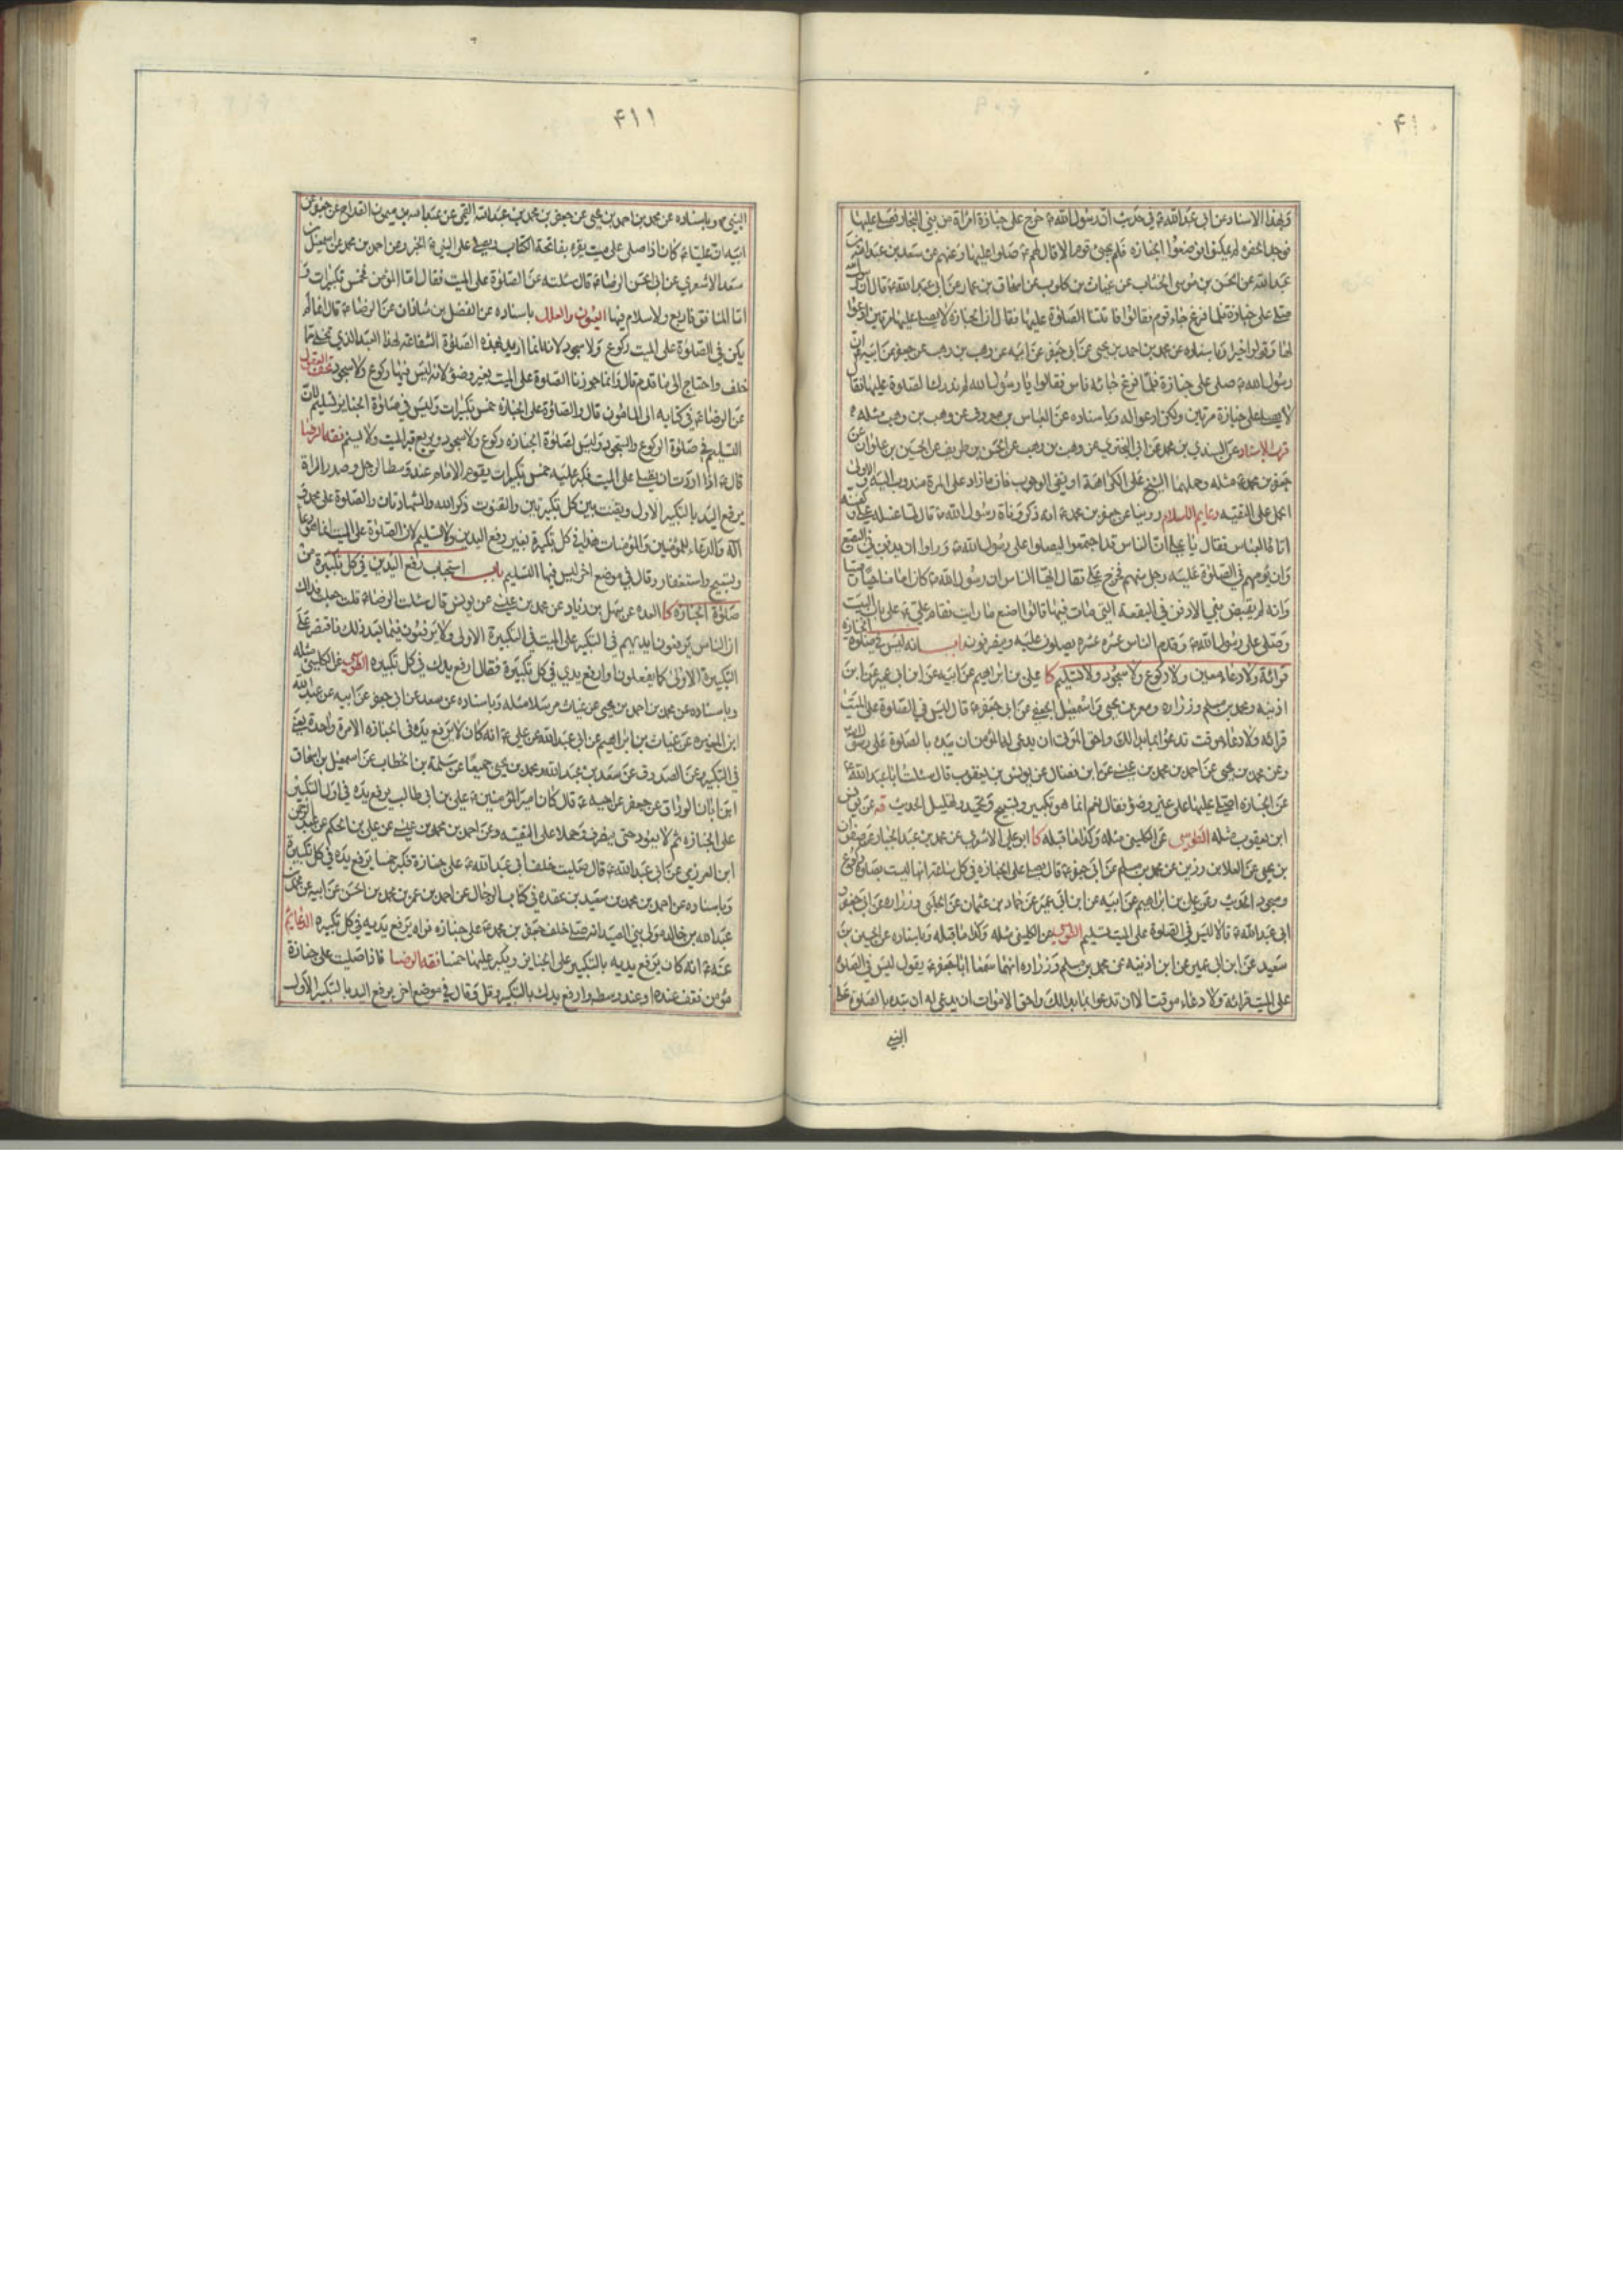 ۴۱۰
وبهذا الاسناد عن ابي عبد الله ع في حديث ان رسول الله ص خرج على جنازة امراة من بني النجار فصلى عليها
فوجد الحفرة لم يمكنوا فوضعوا الجنازة فلم يجئ قوم الا قال لهم ص صلوا عليها وعنهم عن سعد بن عبد الله عن
عبد الله عن الحسن بن موسى الخشاب عن غياث بن كلوب عن اسحاق بن عمار عن ابي عبد الله ع قال ان رسول الله
صلى على جنازة فلما فرغ جاء قوم فقالوا فاتتنا الصلوة عليها فقال ان الجنازة لا يصلى عليها مرتين ادعوا
لها وقولوا خيرا وباسناده عن محمد بن احمد بن يحيى عن ابي جعفر عن ابيه عن وهب بن وهب عن جعفر عن ابيه ان
رسول الله ص صلى على جنازة فلما فرغ جائه ناس فقالوا يا رسول الله لم ندرك الصلوة عليها فقال
لا يصلى على جنازة مرتين ولكن ادعوا له وباسناده عن العباس بن معروف عن وهب بن وهب مثله
قرب الاسناد عن السندي بن محمد عن ابي البختري عن وهب بن وهب عن الحسن بن ظريف عن الحسين بن علوان عن
جعفر بن محمد ع مثله وحملها الشيخ على الكراهة او نفي الوجوب فان ما زاد على المرة مندوب اليه والاولى
الحمل على التقية دعايم الاسلام روينا عن جعفر بن محمد ع انه ذكر وفاة رسول الله ص قال لما غسله علي وكفنه
اتاه العباس فقال يا علي ان الناس قد اجتمعوا ليصلوا على رسول الله ص وراوا ان يدفن في البقيع
وان يؤمهم في الصلوة عليه رجل منهم فخرج علي فقال ايها الناس ان رسول الله ص كان اماما حيا وميتا
وانه لم يقبض نبي الا دفن في البقعة التي مات فيها قالوا اصنع ما رايت فقام علي ع على باب البيت
وصلى على رسول الله ص وقدم الناس عشرة عشرة يصلون عليه وينصرفون باب انه ليس في صلوة الجنازة
قرائة ولا دعاء معين ولا ركوع ولا سجود ولا تسليم كا علي بن ابراهيم عن ابيه عن ابن ابي عمير عن ابن
اذينة ومحمد بن مسلم وزرارة ومعمر بن يحيى واسمعيل الجعفي عن ابي جعفر ع قال ليس في الصلوة على الميت
قرائة ولا دعاء موقت تدعوا بما بدا لك واحق الموتى ان يدعى له المؤمن ان يبدء بالصلوة على رسول الله
وعن محمد بن يحيى عن احمد بن محمد بن عيسى عن ابن فضال عن يونس بن يعقوب قال سئلت ابا عبد الله ع
عن الجنازة اصلي عليها على غير وضوء فقال نعم انما هو تكبير وتسبيح وتحميد وتهليل الحديث قه عن يونس
ابن يعقوب مثله الطوسي عن الكليني مثله وكذا ما قبله كا ابو علي الاشعري عن محمد بن عبد الجبار عن صفوان
بن يحيى عن العلا بن رزين عن محمد بن مسلم عن ابي جعفر ع قال يصلى على الجنازة في كل ساعة انها ليست بصلوة ركوع
وسجود الحديث وعن علي بن ابراهيم عن ابيه عن ابن ابي عمير عن حماد بن عثمان عن الحلبي وزرارة عن ابي جعفر و
ابي عبد الله ع قالا ليس في الصلوة على الميت تسليم الطوسي عن الكليني مثله وكذا ما قبله وباسناده عن الحسين بن
سعيد عن ابن ابي عمير عن ابن اذينة عن محمد بن مسلم وزرارة انهما سمعا ابا جعفر ع يقول ليس في الصلوة
على الميت قرائة ولا دعاء موقت الا ان تدعوا بما بدا لك واحق الاموات ان يدعى له ان تبدء بالصلوة على
النبي
۴۱۱
النبي ص وباسناده عن محمد بن احمد بن يحيى عن جعفر بن محمد بن عبد الله القمي عن عبد الله بن ميمون القداح عن جعفر عن
ابيه ان عليا ع كان اذا صلى على ميت يقرء بفاتحة الكتاب ويصلي على النبي ص الخبر وعن احمد بن محمد عن اسمعيل بن
سعد الاشعري عن ابي الحسن الرضا ع قال سئلته عن الصلوة على الميت فقال اما المؤمن فخمس تكبيرات و
اما المنافق فاربع ولا سلام فيها العيون والعلل باسناده عن الفضل بن شاذان عن الرضا ع قال انما لم
يكن في الصلوة على الميت ركوع ولا سجود لانه انما اريد بهذه الصلوة الشفاعة لهذا العبد الذي تخلى مما
خلف واحتاج الى ما قدم قال وانما جوزنا الصلوة على الميت بغير وضوء لانه ليس فيها ركوع ولا سجود تحف العقول
عن الرضا ع في كتابه الى المامون قال والصلوة على الجنازة خمس تكبيرات وليس في صلوة الجنايز تسليم لان
التسليم في صلوة الركوع والسجود وليس لصلوة الجنازة ركوع ولا سجود ويربع قبر الميت ولا يسنم فقه الرضا
قال ع اذا اردت ان تصلي على الميت فكبر عليه خمس تكبيرات يقوم الامام عند وسط الرجل وصدر المراة
يرفع اليد بالتكبير الاول ويقنت بين كل تكبيرتين والقنوت ذكر الله والشهادتان والصلوة على محمد و
آله والدعاء للمؤمنين والمؤمنات هذا في كل تكبيرة بغير رفع اليدين ولا تسليم لان الصلوة على الميت انما هو دعاء
وتسبيح واستغفار وقال في موضع اخر ليس فيها التسليم باب استحباب رفع اليدين في كل تكبيرة من
صلوة الجنازة كا العدة عن سهل بن زياد عن محمد بن عيسى عن يونس قال سئلت الرضا ع قلت جعلت فداك
ان الناس يرفعون ايديهم في التكبير على الميت في التكبيرة الاولى ولا يرفعون فيما بعد ذلك فاقتصر على
التكبيرة الاولى كما يفعلون او ارفع يدي في كل تكبيرة فقال ارفع يدك في كل تكبيرة الطوسي عن الكليني مثله
وباسناده عن محمد بن احمد بن يحيى عن غياث مرسلا مثله وباسناده عن سعد عن ابي جعفر عن ابيه عن عبد الله
ابن المغيرة عن غياث بن ابراهيم عن ابي عبد الله عن علي ع انه كان لا يرفع يده في الجنازة الا مرة واحدة يعني
في التكبير وعن الصدوق عن سعد بن عبد الله ومحمد بن يحيى جميعا عن سلمة بن الخطاب عن اسمعيل بن اسحاق
ابن ابان الوراق عن جعفر عن ابيه ع قال كان امير المؤمنين ع علي بن ابي طالب يرفع يده في اول التكبير
على الجنازة ثم لا يعود حتى ينصرف وحملا على التقية وعن احمد بن محمد بن عيسى عن علي بن الحكم عن عبد الرحمن
ابن العرزمي عن ابي عبد الله ع قال صليت خلف ابي عبد الله ع على جنازة فكبر خمسا يرفع يده في كل تكبيرة
وباسناده عن احمد بن محمد بن سعيد بن عقدة في كتاب الرجال عن احمد بن عمر بن محمد بن الحسن عن ابيه عن محمد بن
عبد الله بن خالد مولى بني الصيدا انه صلى خلف جعفر بن محمد ع على جنازة فراه يرفع يديه في كل تكبيرة الدعايم
عنه ع انه كان يرفع يديه بالتكبير على الجنايز ويكبر عليها خمسا فقه الرضا فاذا صليت على جنازة
مؤمن فقف عند صدره او عند وسطه وارفع يدك بالتكبير وقل وقال في موضع اخر يرفع اليد بالتكبير الاول